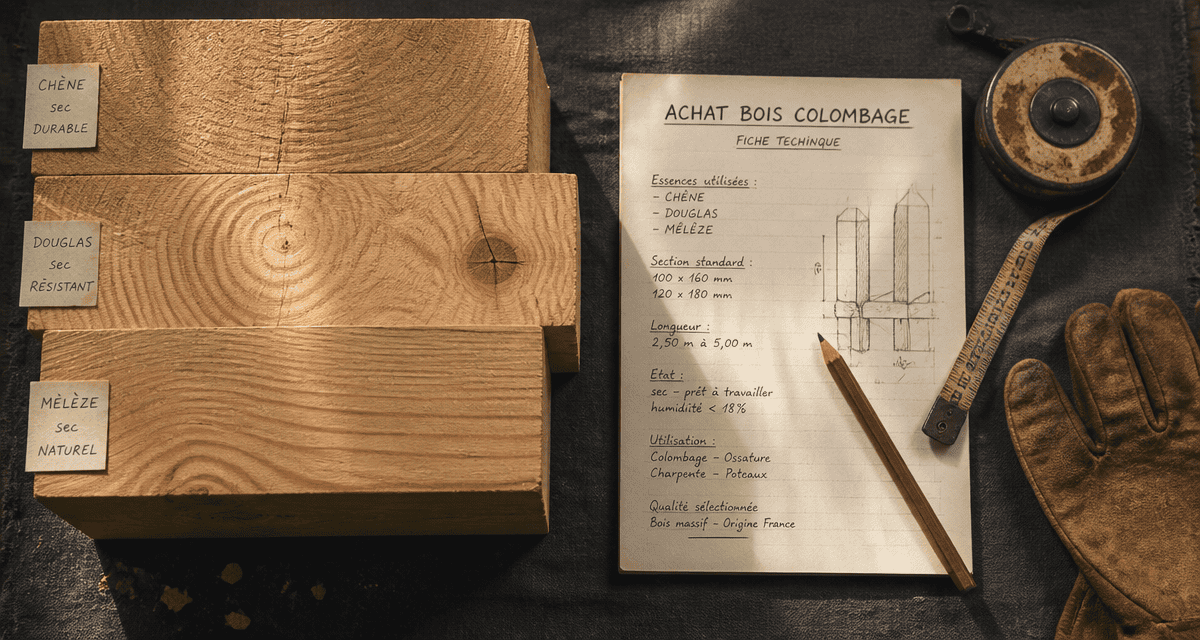 CHÈNE
sec
DURABLE
DOUGLAS
sec
RÈSISTANT
MÈLÈZE
sec
NATUREL
ACHAT BOIS COLOMBAGE
FICHE TECHINQUE
Essences utilisées :
- CHÊNE
- DOUGLAS
- MÊLÈZE
Section standard :
100 x 160 mm
120 x 180 mm
Longueur :
2,50 m à 5,00 m
Etat :
sec - prêt à travailler
humidité < 18%
Utilisation :
Colombage - Ossature
Charpente - Poteaux
Qualité sélectionnée
Bois massif - Origine France